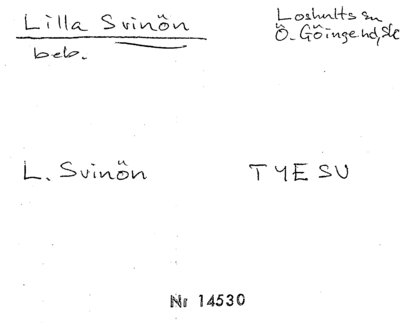 Lilla Svinön
Loshults sn
beb.
Ö. Göinge hd, Sk
L. Svinön
TYESU
Nr 14530